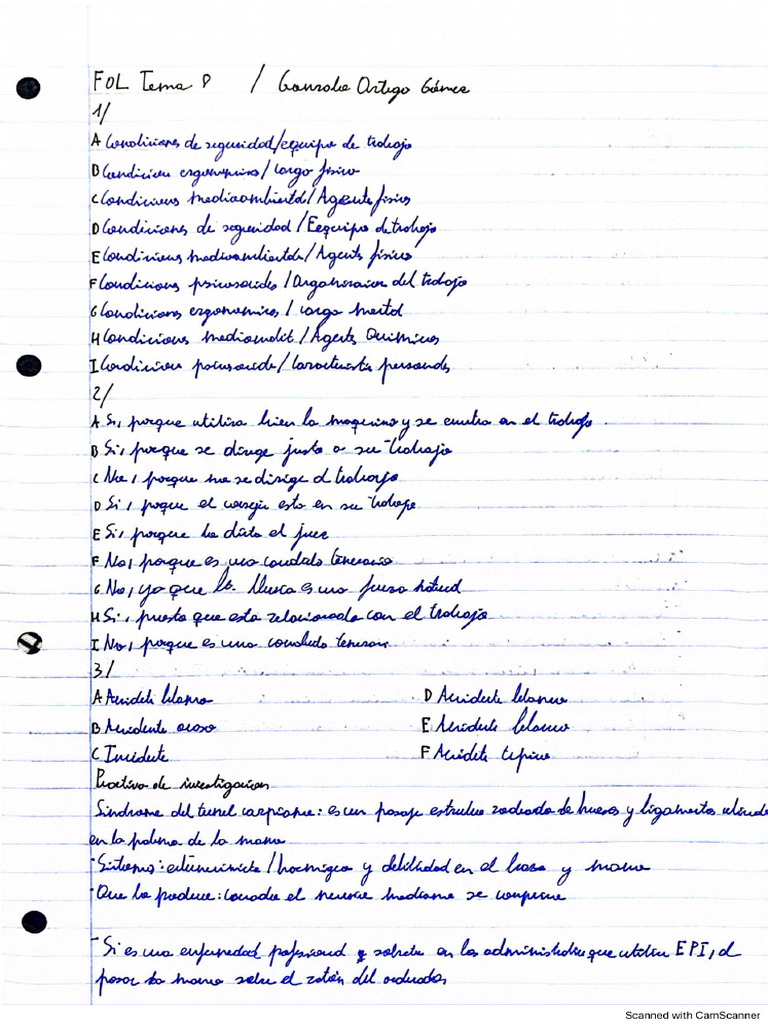 FOL Tema 8 / Gonzalo Ortego Gómez
1/
A Condiciones de seguridad/equipo de trabajo
B Condicion ergonomica/carga fisica
C Condiciones medioambiental/Agente fisico
D Condiciones de seguridad/Eequipo de trabajo
E Condiciones medioambientale/Agente fisico
F Condiciones psicosociales/Organizacion del trabajo
G Condiciones ergonomica/carga mental
H Condiciones medioambit/Agente Quimicos
I Condicion psicosociale/Caracteristic personales
2/
A Si, porque utiliza bien la maquina y se encutra en el trabajo.
B Si, porque se dirige justo a su trabajo
C No, porque no se dirige al trabajo
D Si, porque el conseje esta en su trabajo
E Si, porque lo dicta el juez
F No, porque es una conducta temeraria
G No, ya que la lluvia es una fuerza natural
H Si, puesto que esta relacionado con el trabajo
I No, porque es una conducta temerari
3/
A Accidete blanco
D Accidente blanco
B Accidente acaso
E Accidente blanco
C Incidente
F Accidete tipico
Practica de investigacion
Sindrome del tunel carpiano: es un pasaje estrecho rodeado de huesos y ligamentos
en la palma de la mano
-Sintomas: / hormigeo y debilidad en el brazo y mano
-Que lo produce: cuando el nervio mediano se comprime
-Si es una enfermedad profesional y sobreto en los que utilizan EPI, al
posar la mano sobre el raton del ordenador
Scanned with CamScanner